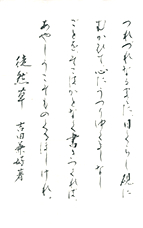 つれつれなるまゝに日くらし硯に
むかひて心にうつりゆくよしなし
ことをそこはかとなく書きつくれば
あやしうこそものくるほしけれ
徒然草 吉田兼好著